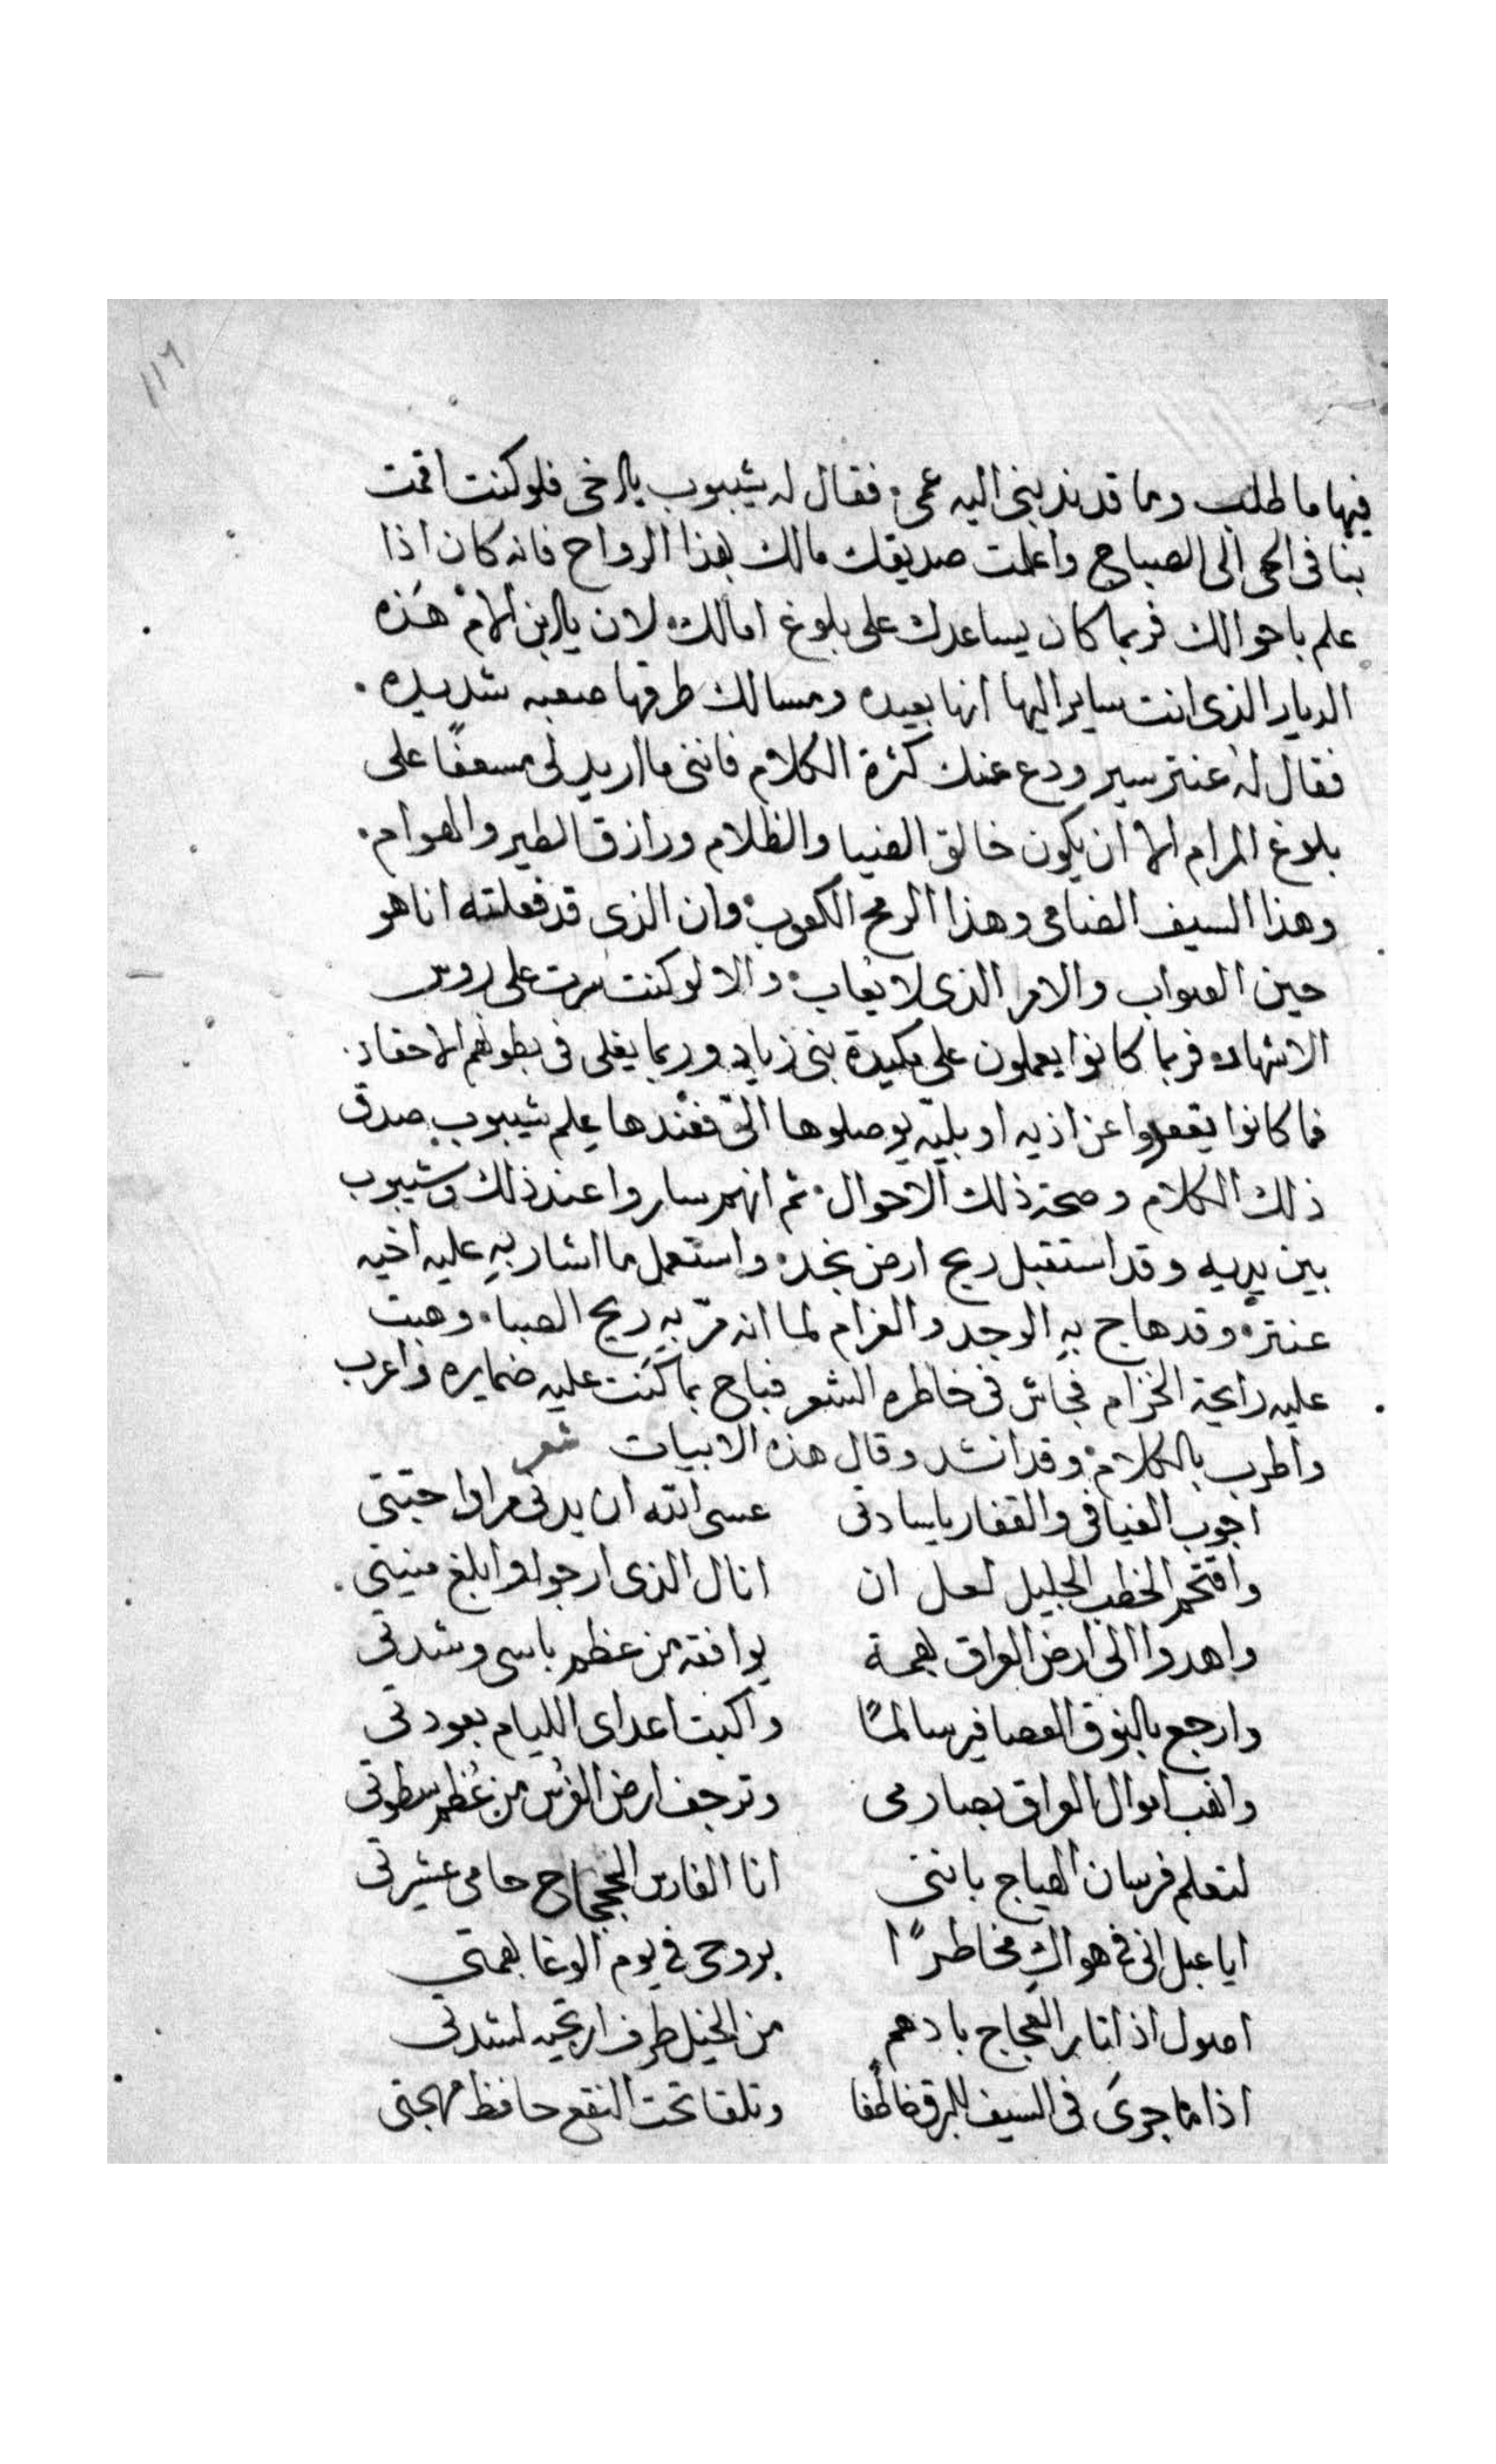 ١١٦
فيها ما طلب وما قد ندبنى اليه عمى، فقال له شيبوب يا اخى فلو كنت اقمت
بنا فى الحى الى الصباح واعلمت صديقك مالك بهذا الرواح فانه كان اذا
علم باحوالك فربما كان يساعدك على بلوغ امالك، لان يا ابن الام هَذه
الديار الذى انت ساير اليها انها بعيده ومسالك طرقها صعبه شديده.
فقال له عنتر سير ودع عنك كثرة الكلام فاننى ما اريد لى مسعفًا على
بلوغ المرام الا ان يكون خالق الضيا والظلام ورازق الطير والهوام.
وهذا السيف الضامى وهذا الرمح الكعوب، وان الذى قد فعلته انا هو
عين الصواب والامر الذى لا يعاب، والا لو كنت سرت على روس
الاشهاد، فربما كانوا يعملون على مكيدة بنى زياد وربما يغلى فى بطونهم الاحقاد.
فما كانوا يقعدوا عن اذيه او بليّه يوصلوها الىّ فعندها علم شيبوب صدق
ذلك الكلام وصحة ذلك الاحوال، ثم انهم ساروا عند ذلك وشيبوب
بين يديه وقد استقبل ريح ارض نجد، واستعمل ما اشار بهِ عليه اخيه
عنتر، وقد هاج بهِ الوجد والغرام لما انه مرّ بهِ ريح الصبا، وهبت
عليه رايحة الخزام فجاش فى خاطره الشعر فباح بما كنت عليه ضمايره واعرب
واطرب بالكلام، وقد انشد وقال هذه الابيات شعر
اجوب الفيافى والقفار يا سادتى عسى الله ان يدنى مرادا حبتى
واقتحم الخطب الجليل لعل ان انال الذى ارجوا وابلغ منيتى.
واهدوا الى ارض العراق بهمة يوافقه من عظم باسى وشدتى
وارجع بالنوق العصافير سالمًا واكبت اعداى الليام بعودتى
وانهب اموال العراق بصارمى وترجف ارض الفرُس من عُظم سطوتى
لتعلم فرسان الهياج باننى انا الفارس الججحاح حامى عشيرتى
ايا عبل انى فى هواكِ مخاطرًا بروحى فى يوم الوغا بهمتي
اصول اذا ثار العجاج بادهم من الخيل طرف ارتجيه لشدتى
اذا ما جرىَ فى السيف للبرق خاطفا وتلقا تحت النقع حافظ مهجتى